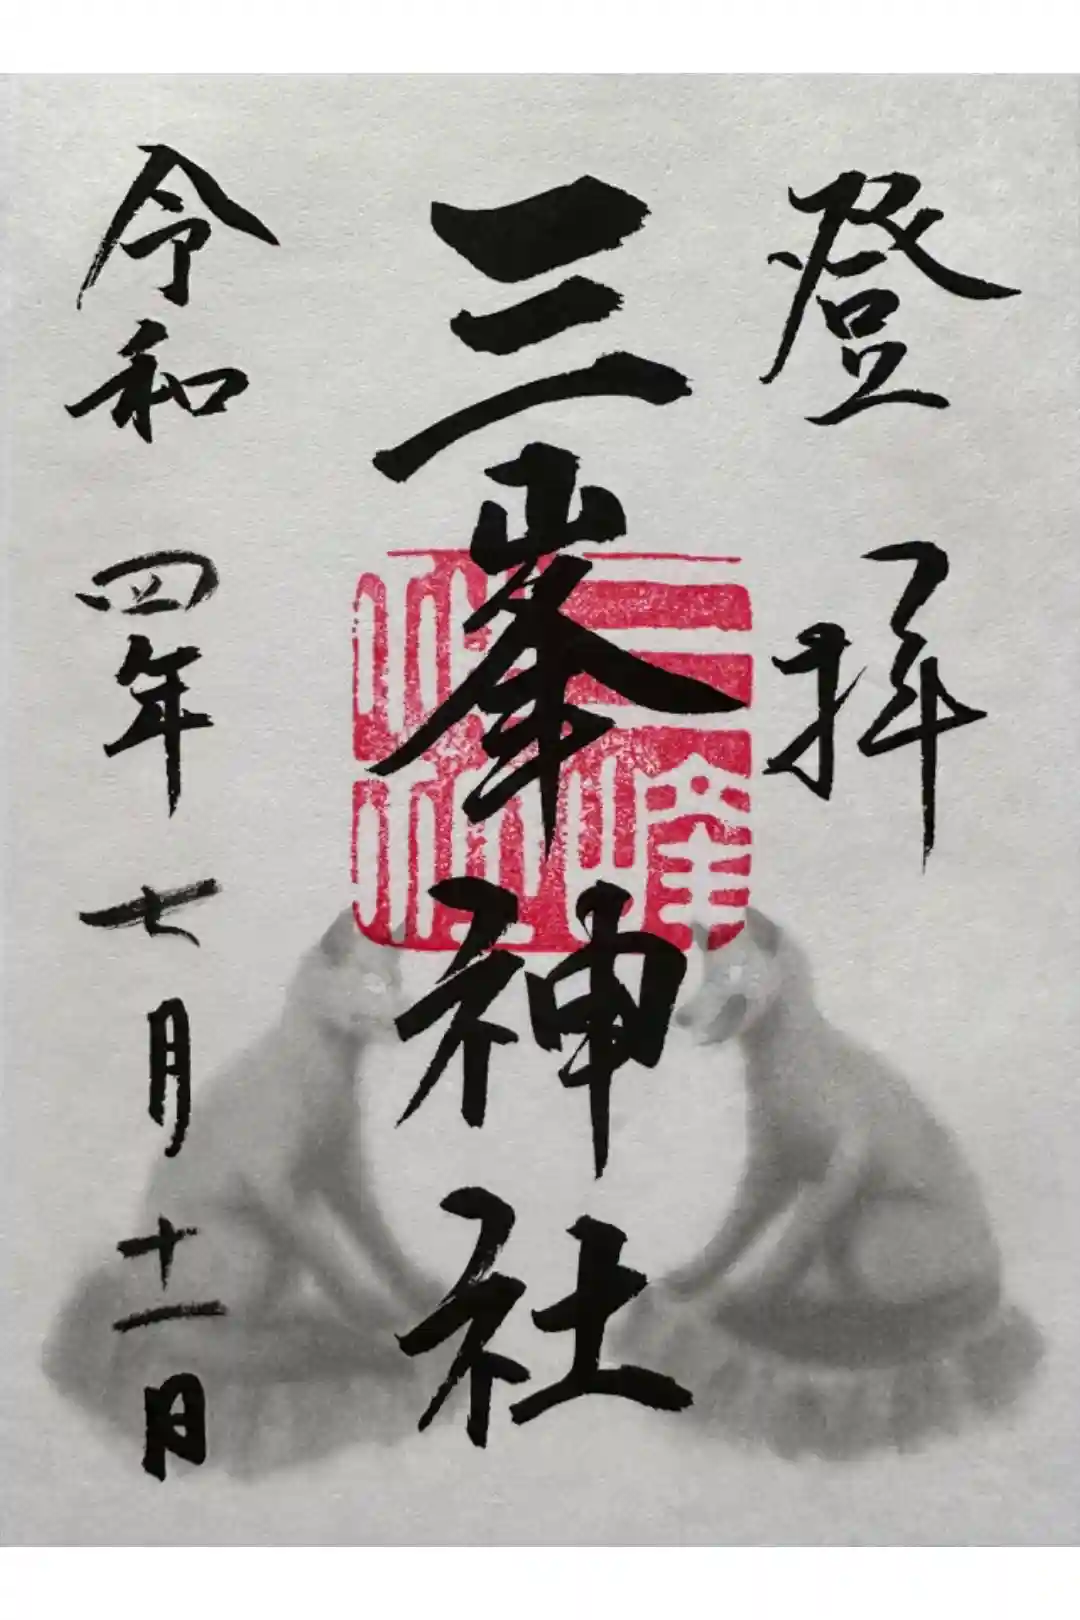 登拝
三峯神社
三峰神社
令和四年七月十一日